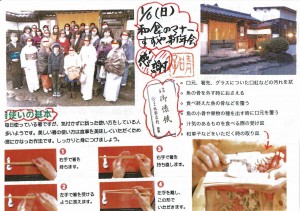 1/6(日)
和食のマナー
すずや新年会
感謝
口元、箸先、グラスについた口紅などの汚れを拭
魚の骨を外す時におさえる
食べ終えた魚の骨などを覆う
魚の小骨や果物の種を出す時に口元を覆う
汁気のあるものを食べる際の受け皿
和菓子などをいただく時の取り皿
箸使いの基本
毎日使っている箸ですが、気付かずに誤った使い方をしている人
も多いようです。美しい箸の使い方は食事を美味しくいただくため
1
右手で箸を
持ちます。
2
左手で箸を受けるよう
に添えます。
3
右手で箸を
持ちます。
4
左手を離し、
この形で
いただきます。